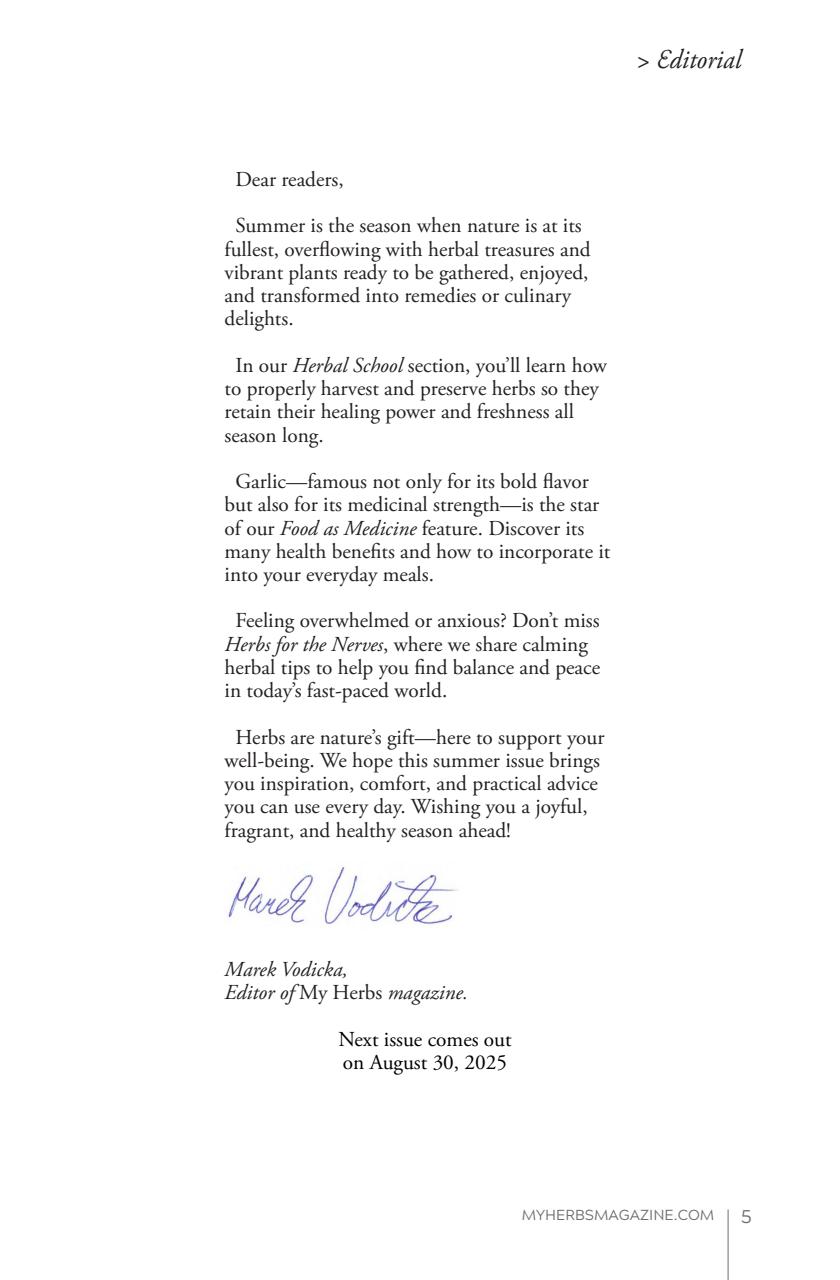 > Editorial
Dear readers,
Summer is the season when nature is at its
fullest, overflowing with herbal treasures and
vibrant plants ready to be gathered, enjoyed,
and transformed into remedies or culinary
delights.
In our Herbal School section, you’ll learn how
to properly harvest and preserve herbs so they
retain their healing power and freshness all
season long.
Garlic—famous not only for its bold flavor
but also for its medicinal strength—is the star
of our Food as Medicine feature. Discover its
many health benefits and how to incorporate it
into your everyday meals.
Feeling overwhelmed or anxious? Don’t miss
Herbs for the Nerves, where we share calming
herbal tips to help you find balance and peace
in today’s fast-paced world.
Herbs are nature’s gift—here to support your
well-being. We hope this summer issue brings
you inspiration, comfort, and practical advice
you can use every day. Wishing you a joyful,
fragrant, and healthy season ahead!
Marek Vodička
Marek Vodicka,
Editor of My Herbs magazine.
Next issue comes out
on August 30, 2025
MYHERBSMAGAZINE.COM 5